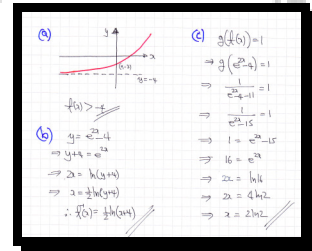 (a)
y
x
(0,-3)
y=-4
f(x) > -4
(b) y = e^{2x} - 4
⇒ y+4 = e^{2x}
⇒ 2x = ln(y+4)
⇒ x = ½ln(y+4)
∴ f⁻¹(x) = ½ln(x+4)
(c) g(f(x)) = 1
⇒ g(e^{2x}-4) = 1
⇒ 1/(e^{2x}-4-11) = 1
⇒ 1/(e^{2x}-15) = 1
⇒ 1 = e^{2x}-15
⇒ 16 = e^{2x}
⇒ 2x = ln16
⇒ 2x = 4ln2
⇒ x = 2ln2